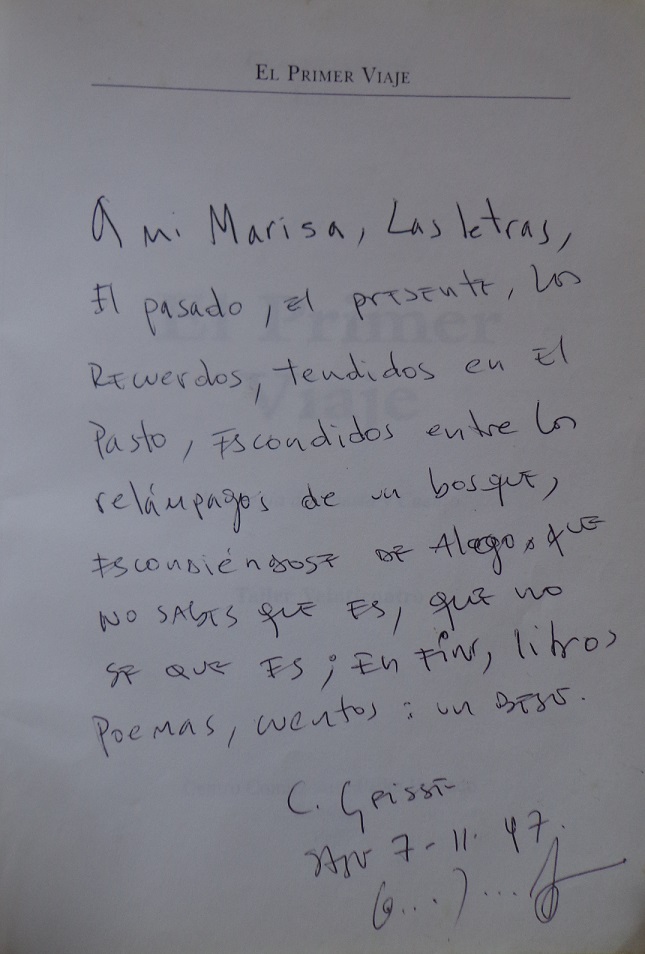 EL PRIMER VIAJE
A mi Marisa, Las letras,
El pasado, el presente, los
Recuerdos, tendidos en El
Pasto, Escondidos entre los
relámpagos de un bosque,
Escondiéndose de Algo, que
no sabes que es, que no
se que es; En Fin, libros
Poemas, cuentos: un beso.
C. Geisse
7-11-97.
(...)...